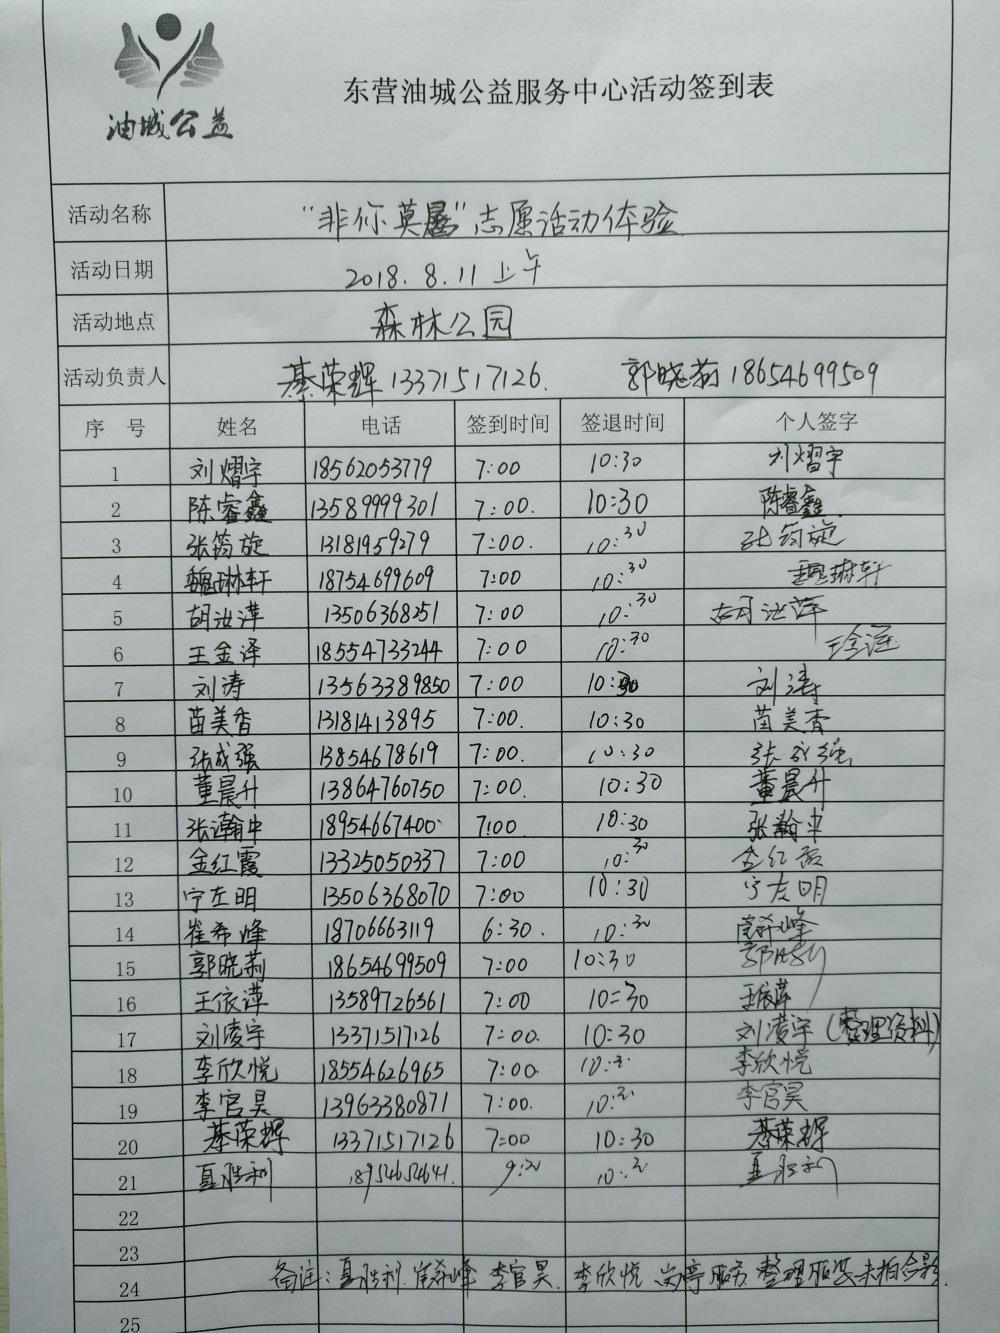 油城公益
东营油城公益服务中心活动签到表
活动名称 "非你莫属"志愿活动体验
活动日期 2018.8.11上午
活动地点 森林公园
活动负责人 綦荣辉13371517126. 郭晓莉18654699509
序 号 姓名 电话 签到时间 签退时间 个人签字
1 刘熠宇 18562053779 7:00 10:30 刘熠宇
2 陈睿鑫 13589999301 7:00. 10:30 陈睿鑫
3 张筠旋 13181959279 7:00. 10:30 张筠旋
4 魏琳轩 18754699609 7:00 10:30 魏琳轩
5 胡汝萍 13506368251 7:00 10:30 胡汝萍
6 王金泽 18554733244 7:00 10:30 王金泽
7 刘涛 13563389850 7:00 10:30 刘涛
8 苗美香 13181413895 7:00. 10:30 苗美香
9 张成强 13854678619 7:00. 10:30 张成强
10 董晨升 13864760750 7:00. 10:30 董晨升
11 张瀚中 18954667400 7:00 10:30 张瀚中
12 金红霞 13325050337 7:00 10:30 金红霞
13 宁左明 13506368070 7:00 10:30 宁左明
14 崔希峰 18706663119 6:30. 10:30 崔希峰
15 郭晓莉 18654699509 7:00 10:30 郭晓莉
16 王依萍 13589726561 7:00 10=30 王依萍
17 刘凌宇 13371517126 7:00. 10:30 刘凌宇(整理资料)
18 李欣悦 18554626965 7:00. 10:3 李欣悦
19 李官昊 13963380871 7:00. 10:3 李官昊
20 綦荣辉 13371517126 7:00 10:30 綦荣辉
21 夏胜利 18954654641. 9:20 10:30 夏胜利
22
23
24 备注:夏胜利.崔希峰 李官昊.李欣悦 岗亭服务 整理服装未拍合影.
25